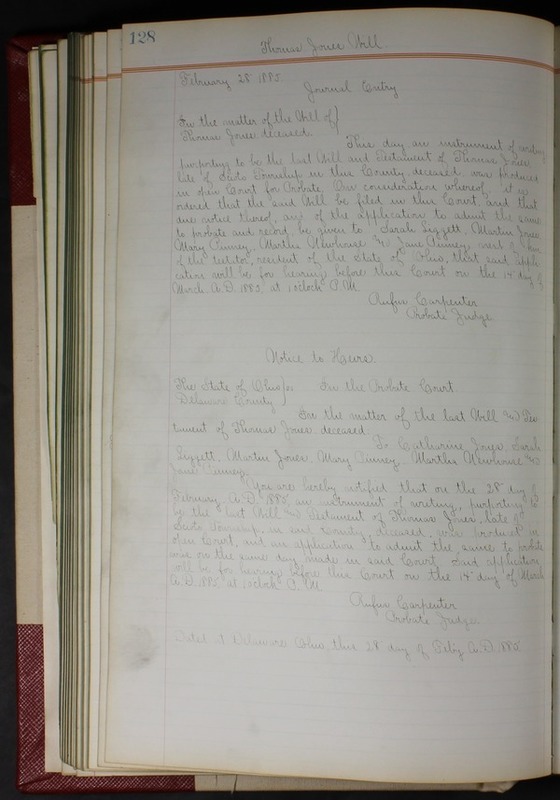 128
Thomas Jones Will.
February 28 1885.
Journal Entry
In the matter of the Will of }
Thomas Jones deceased.
This day an instrument of writing
purporting to be the last Will and Testament of Thomas Jones
late of Scioto Township in this County, deceased, was produced
in open Court for Probate. On consideration whereof, it is
ordered that the said Will be filed in this Court, and that
due notice thereof, and of the application to admit the same
to probate and record, be given to Sarah Liggett, Martin Jones
Mary Penney, Martha Newhouse & Jane Penney, next of kin
of the testator, resident of the State of Ohio, that said appli
cation will be for hearing before this Court on the 14" day of
March A.D. 1885, at 1 oclock P.M.
Rufus Carpenter
Probate Judge
Notice to Heirs
The State of Ohio } In the Probate Court.
Delaware County }
In the matter of the last Will & Tes
tament of Thomas Jones deceased
To Catharine Jones, Sarah
Liggett, Martin Jones, Mary Penney, Martha Newhouse &
Jane Penney.
You are hereby notified that on the 28" day of
February A.D. 1885, an instrument of writing, purporting to
be the last Will & Testament of Thomas Jones, late of
Scioto Township in said County, deceased, was produced in
open Court, and an application to admit the same to probate
was on the same day made in said Court. Said application
will be for hearing before this Court on the 14" day of March
A.D. 1885 at 1 oclock P.M.
Rufus Carpenter
Probate Judge.
Dated at Delaware Ohio, this 28" day of Feby A.D. 1885